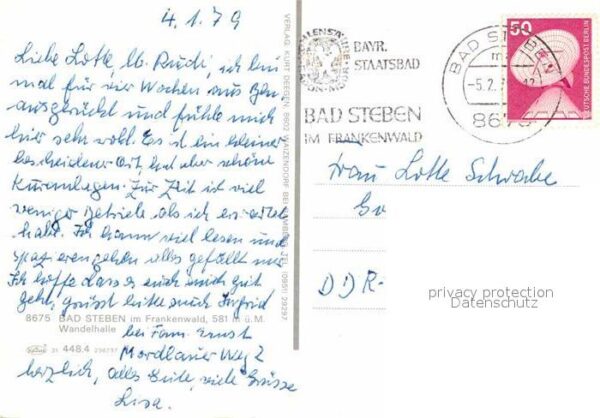 4.1.79
Liebe Lotte u. Rudi, ich bin
mal für vier Wochen aus
ausgerückt und fühle mich
hier sehr wohl. Es ist ein kleiner
bescheidener Ort, hat aber schöne
Kuranlagen. Zur Zeit ist viel
weniger Betrieb, als ich erwartet
habe. Ich kann viel lesen und
spazierengehen alles gefällt mir
Ich hoffe dass es euch auch gut
geht, grüsst bitte auch Ingrid
8675 BAD STEBEN im Frankenwald, 581 m ü.M.
Wandelhalle
31 448.4
bei Fam. Ernst
Mordlauer Weg 2
herzlich, alles Gute, viele Grüsse
Lisa.
VERLAG KURT DEEGEN · 8602 WAIZENDORF BEI BAMBERG TEL. (0951) 29297
BAYR.
STAATSBAD
BAD STEBEN
IM FRANKENWALD
BAD STEBEN
-5.2.
8675
50
DEUTSCHE BUNDESPOST BERLIN
Frau Lotte Schwabe
DDR-
privacy protection
Datenschutz